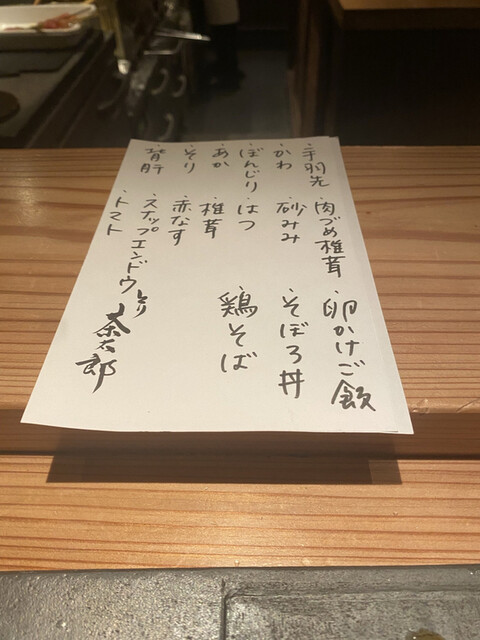 ・手羽先
・かわ
・ぼんじり
・あか
・そり
・背肝
・肉づめ椎茸
・砂ずり
・はつ
・椎茸
・赤なす
・スナップエンドウ
・トマト
・卵かけご飯
・そぼろ丼
・鶏そば
とり茶太郎